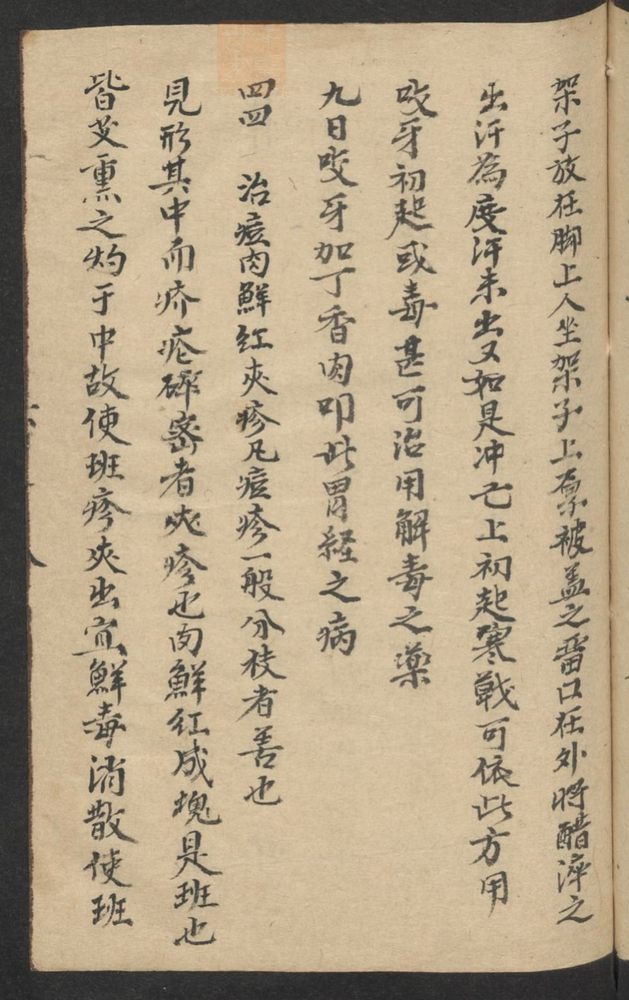 架子放在脚上人坐架子上衆被盖之畱口在外将醋淬之
出汗為度汗未出又如是冲亡上初起寒戰可依此方用
咬牙初起或毒甚可治用解毒之藥
九日咬牙加丁香肉叩此胃経之病
四四　治痘肉鮮紅夾疹凡痘疹一般分枝者善也
見形其中而疥疮碎密者夾疹也肉鮮紅成塊是班也
皆熏之灼于中故使班疹夾出宜鮮毒消散使班